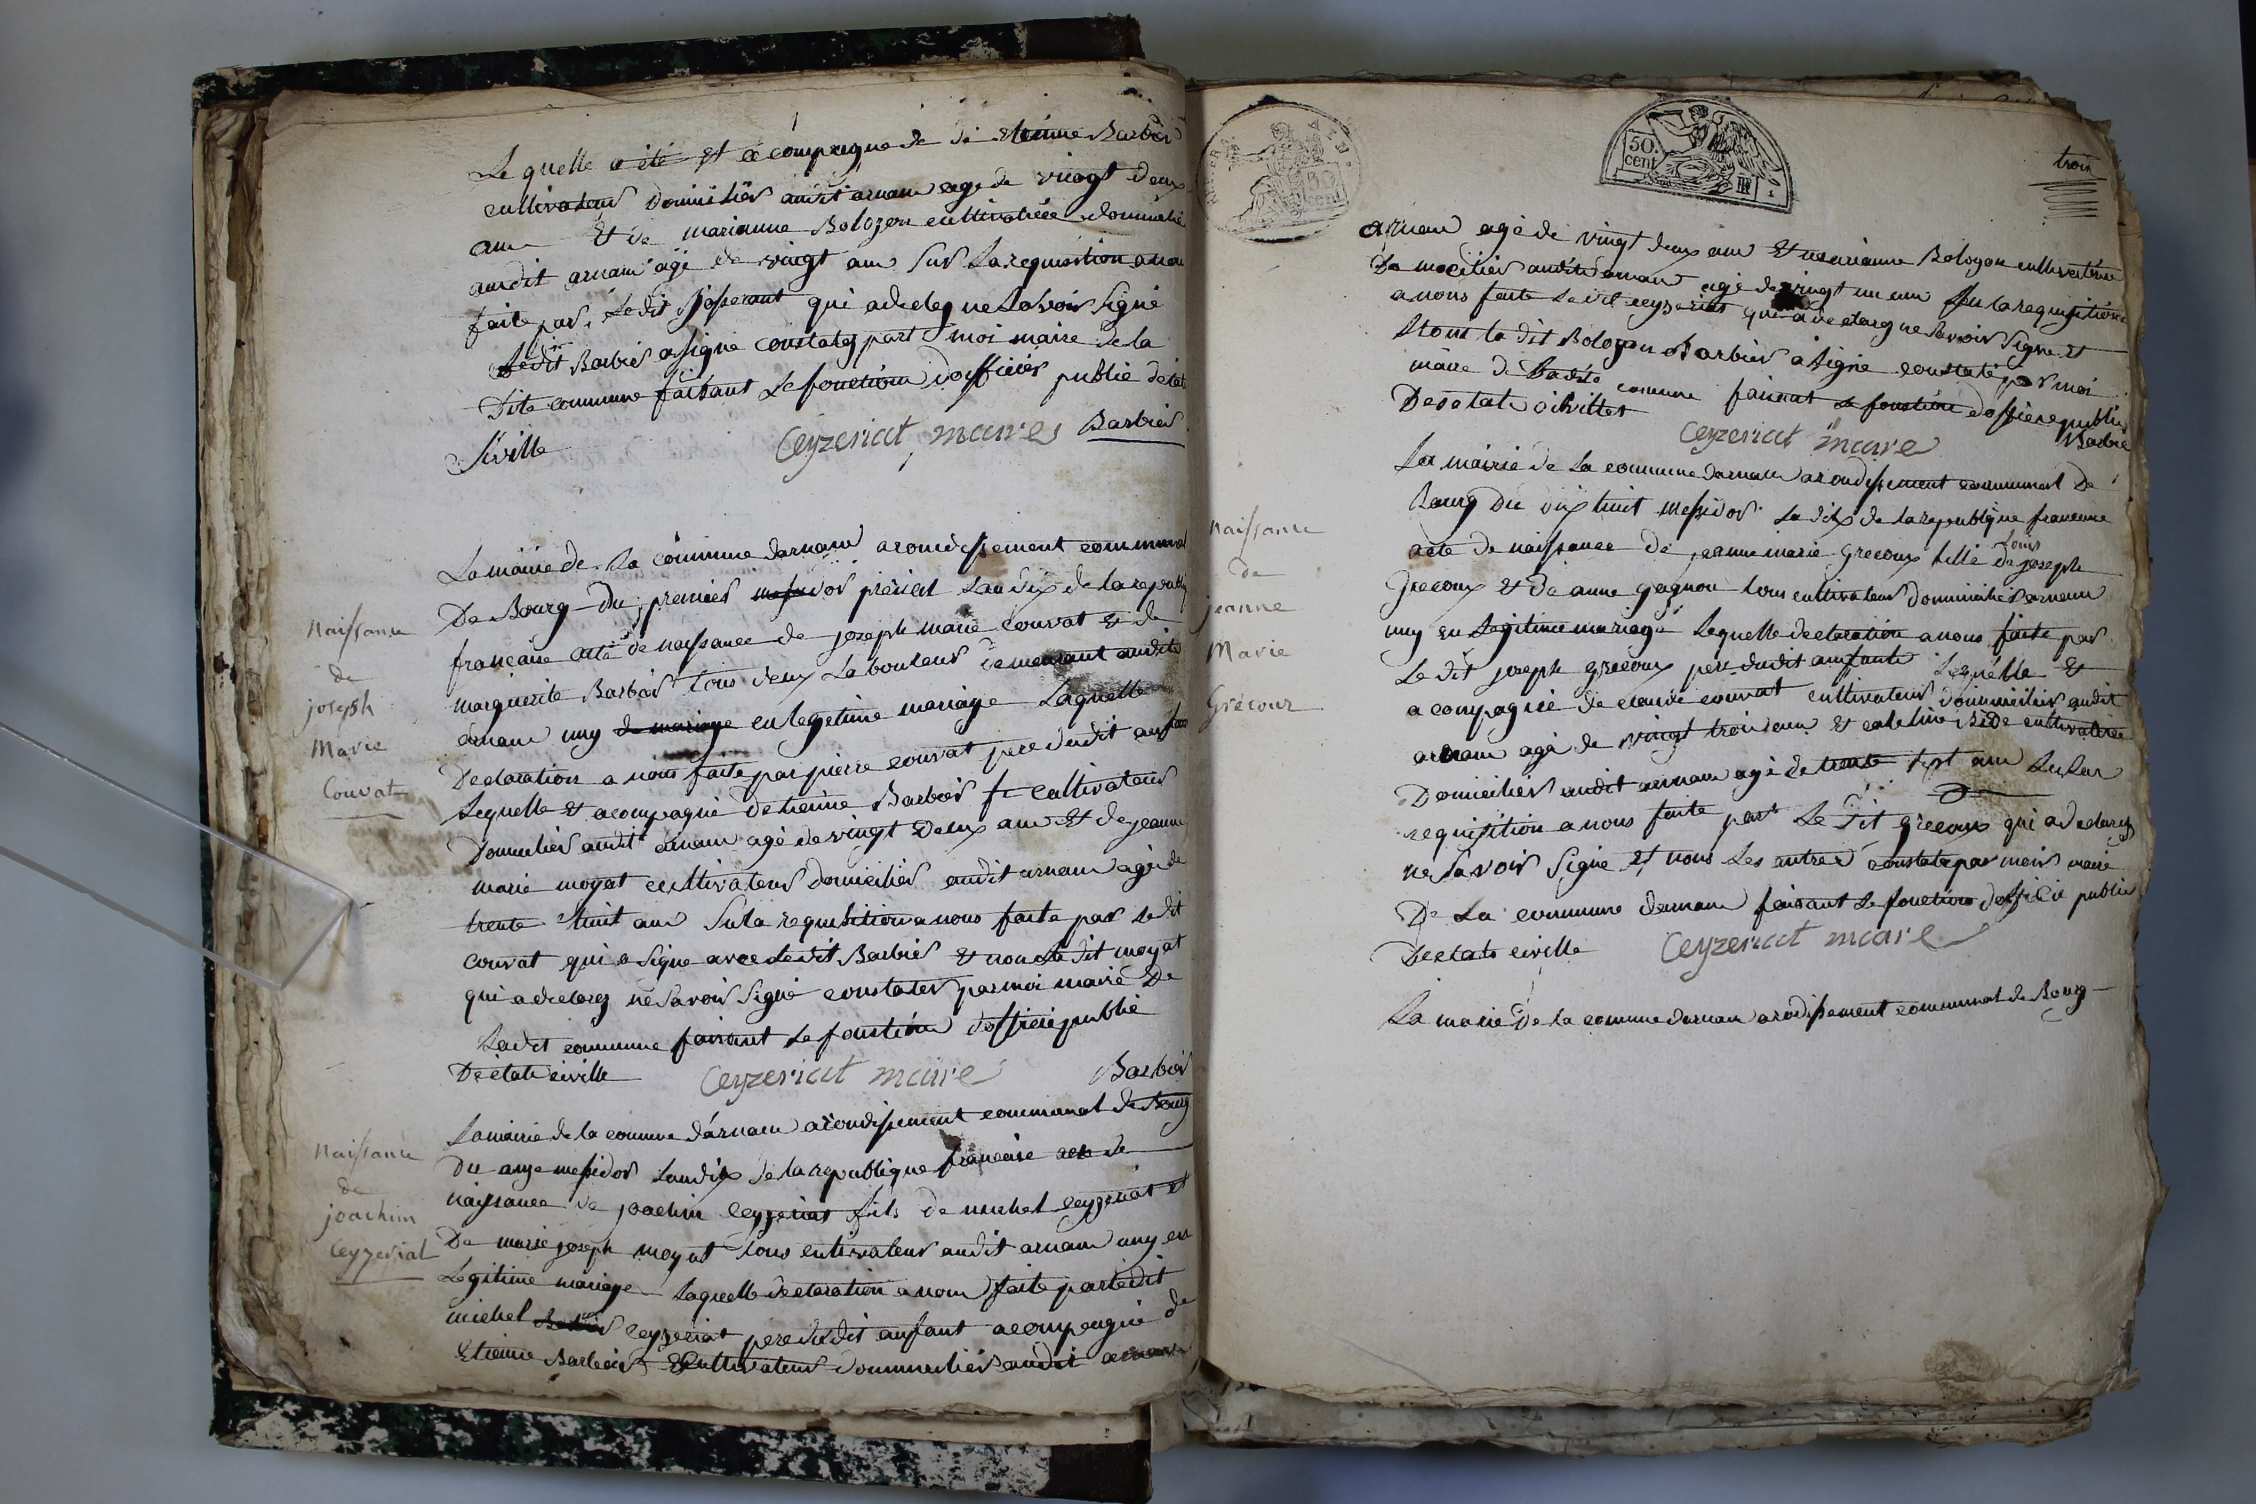 Lequelle a été et acompagné de di etienne Barbier
cultivateur domicilier audit arnan age de vingt deux
ans et de marianne Bolozon cultivatrice domicilié
audit arnan agé de vingt ans sur La requisition a nou
faite par Ledit qui a declaré ne Savoir Signé
Ledit Barbier a signé constaté part moi maire de la
dite commune faisant Le fonction d'officier public detat
Siville
Ceyzeriat maire Barbier
La mairie de la commune darnans arondissement communal
De Bourg du premier messidor Lan dix de la republiq
francaise acte de naissance de joseph marie Couvat et de
marguerite Barbier tous deux Laboureur demeurant audit
arnans uny de mariage en legetime mariage Laquelle
Declaration a nous faite par pierre couvat pere dudit anfan
Lequelle et acompagné detienne Barbier cultivateur
Domicilier audit arnam agé de vingt deux ans et de jeanne
marie moyat cultivateur domicilier audit arnam agé de
trente huit ans Sula requisition a nous faite par ledit
couvat qui a signé avec Ledit Barbier et non Ladit moyat
qui a declarez ne Savoir Signé constater par moi mairie De
Ladit commune faisant Le fonction dofficié public
De état civille
Ceyzeriat maire Barbier
La mairie de la commune d'arnam arondissement communal de Bourg
Du onze messidor Landix de la republique francaise acte de
naissance de joachin Ceyzeriat fils de michel ceyzeriat et
De marie joseph moyat tous cultivateur audit arnam uny en
Legitime mariage Laquelle declaration a nous faite par ledit
michel ceyzeriat pere dudit anfant acompagnié de
Etienne Barbier cultivateur dommicilier audit arnam
Naissance
de
joseph
Marie
Couvat
Naissance
de
joachim
Ceyzeriat
50.
cent
trois
arnam agé de vingt deux ans et marianne Bologon cultivatrice
Domicilier audite arnam agé de vingt un ans Su la requisition
a nous faite Ledit ceyzeriat qui a declarez ne Savoir Signé et
nons la dit Bologon Barbier a Signé constaté par moi
maire de Ladite commune faisant le fonction dofficié public
Desetat civilles
Ceyzeriat maire Barbié
La mairie de La commune darnam arondissement communal De
Bourg Du dix huit Messidor Lan dix de la republique francaise
acte de naissance de jeanne marie Grecoux fille de Louis joseph
Grecoux et de anne gagnon tous cultivateur domicilier arnam
uny en Legitime mariage Lequelle declaration a nous faite par
Le dit joseph Grecoux pere dudit anfant Lequélle et
acompagnié de claude couvat cultivateur domicilier audit
arnam agé de vingt trois ans et cateline Bide cultivatrice
Domicilier audit arnam agé de trente sept ans Su Lar
requisition a nous faite part Le dit Grecoux qui a declarez
ne Savoir Signé et nous Les autres constate par moi maire
De La commune darnam faisant Le fonction dofficié public
Desetats civille
Ceyzeriat maire
La marie De la commune darnam arodissement communal de Bourg
Naissance
de
jeanne
Marie
Grecour